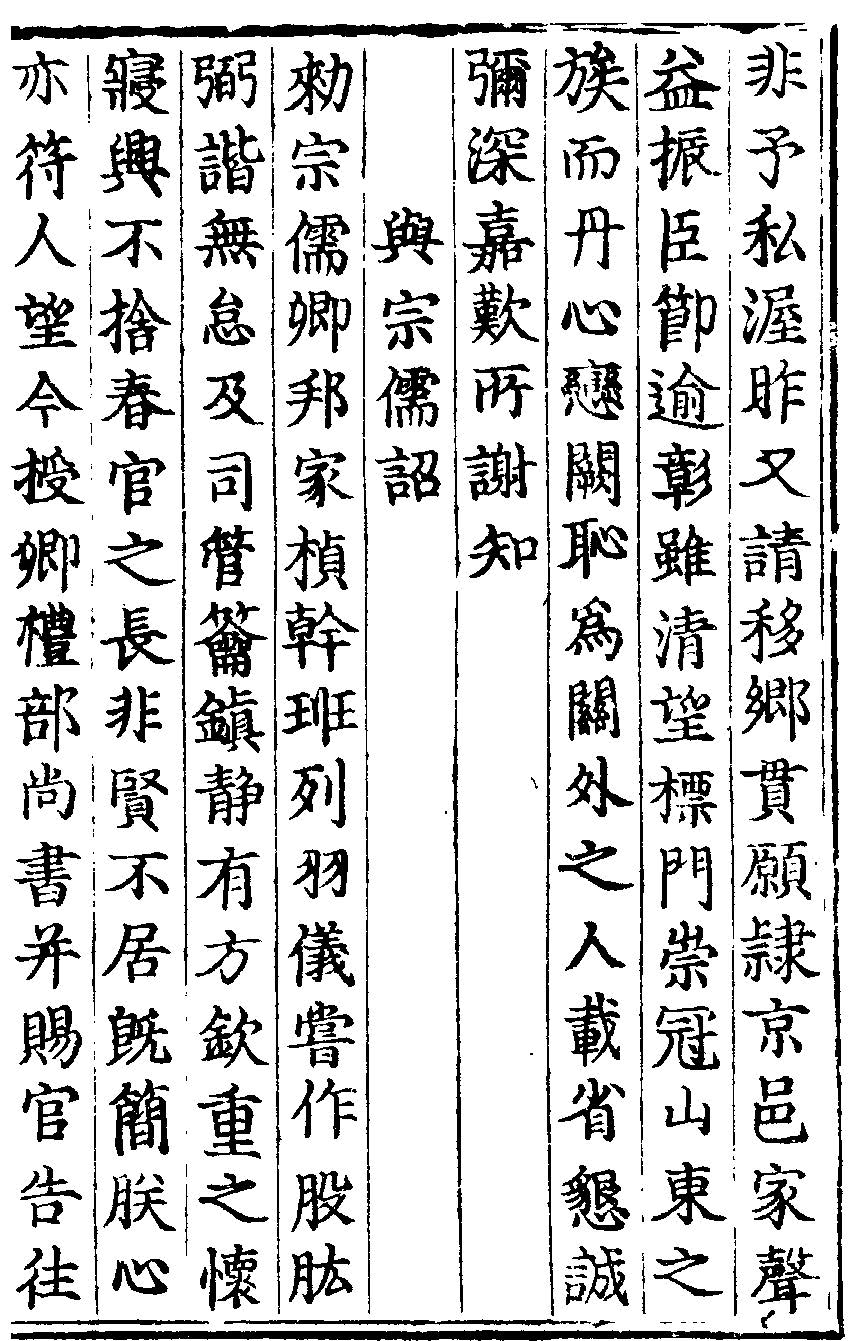 非予私渥昨又請移鄉貫願隷京邑家聲
益振臣節逾彰雖清望標門崇冠山東之
族而丹心戀闕恥爲關外之人載省懇誠
彌深嘉歎所謝知
與宗儒詔
勑宗儒卿邦家楨幹班列羽儀嘗作股肱
弼諧無怠及司管籥鎮静有方欽重之懷
寢興不捨春官之長非賢不居旣簡朕心
亦符人望今授卿禮部尚書并賜官告往